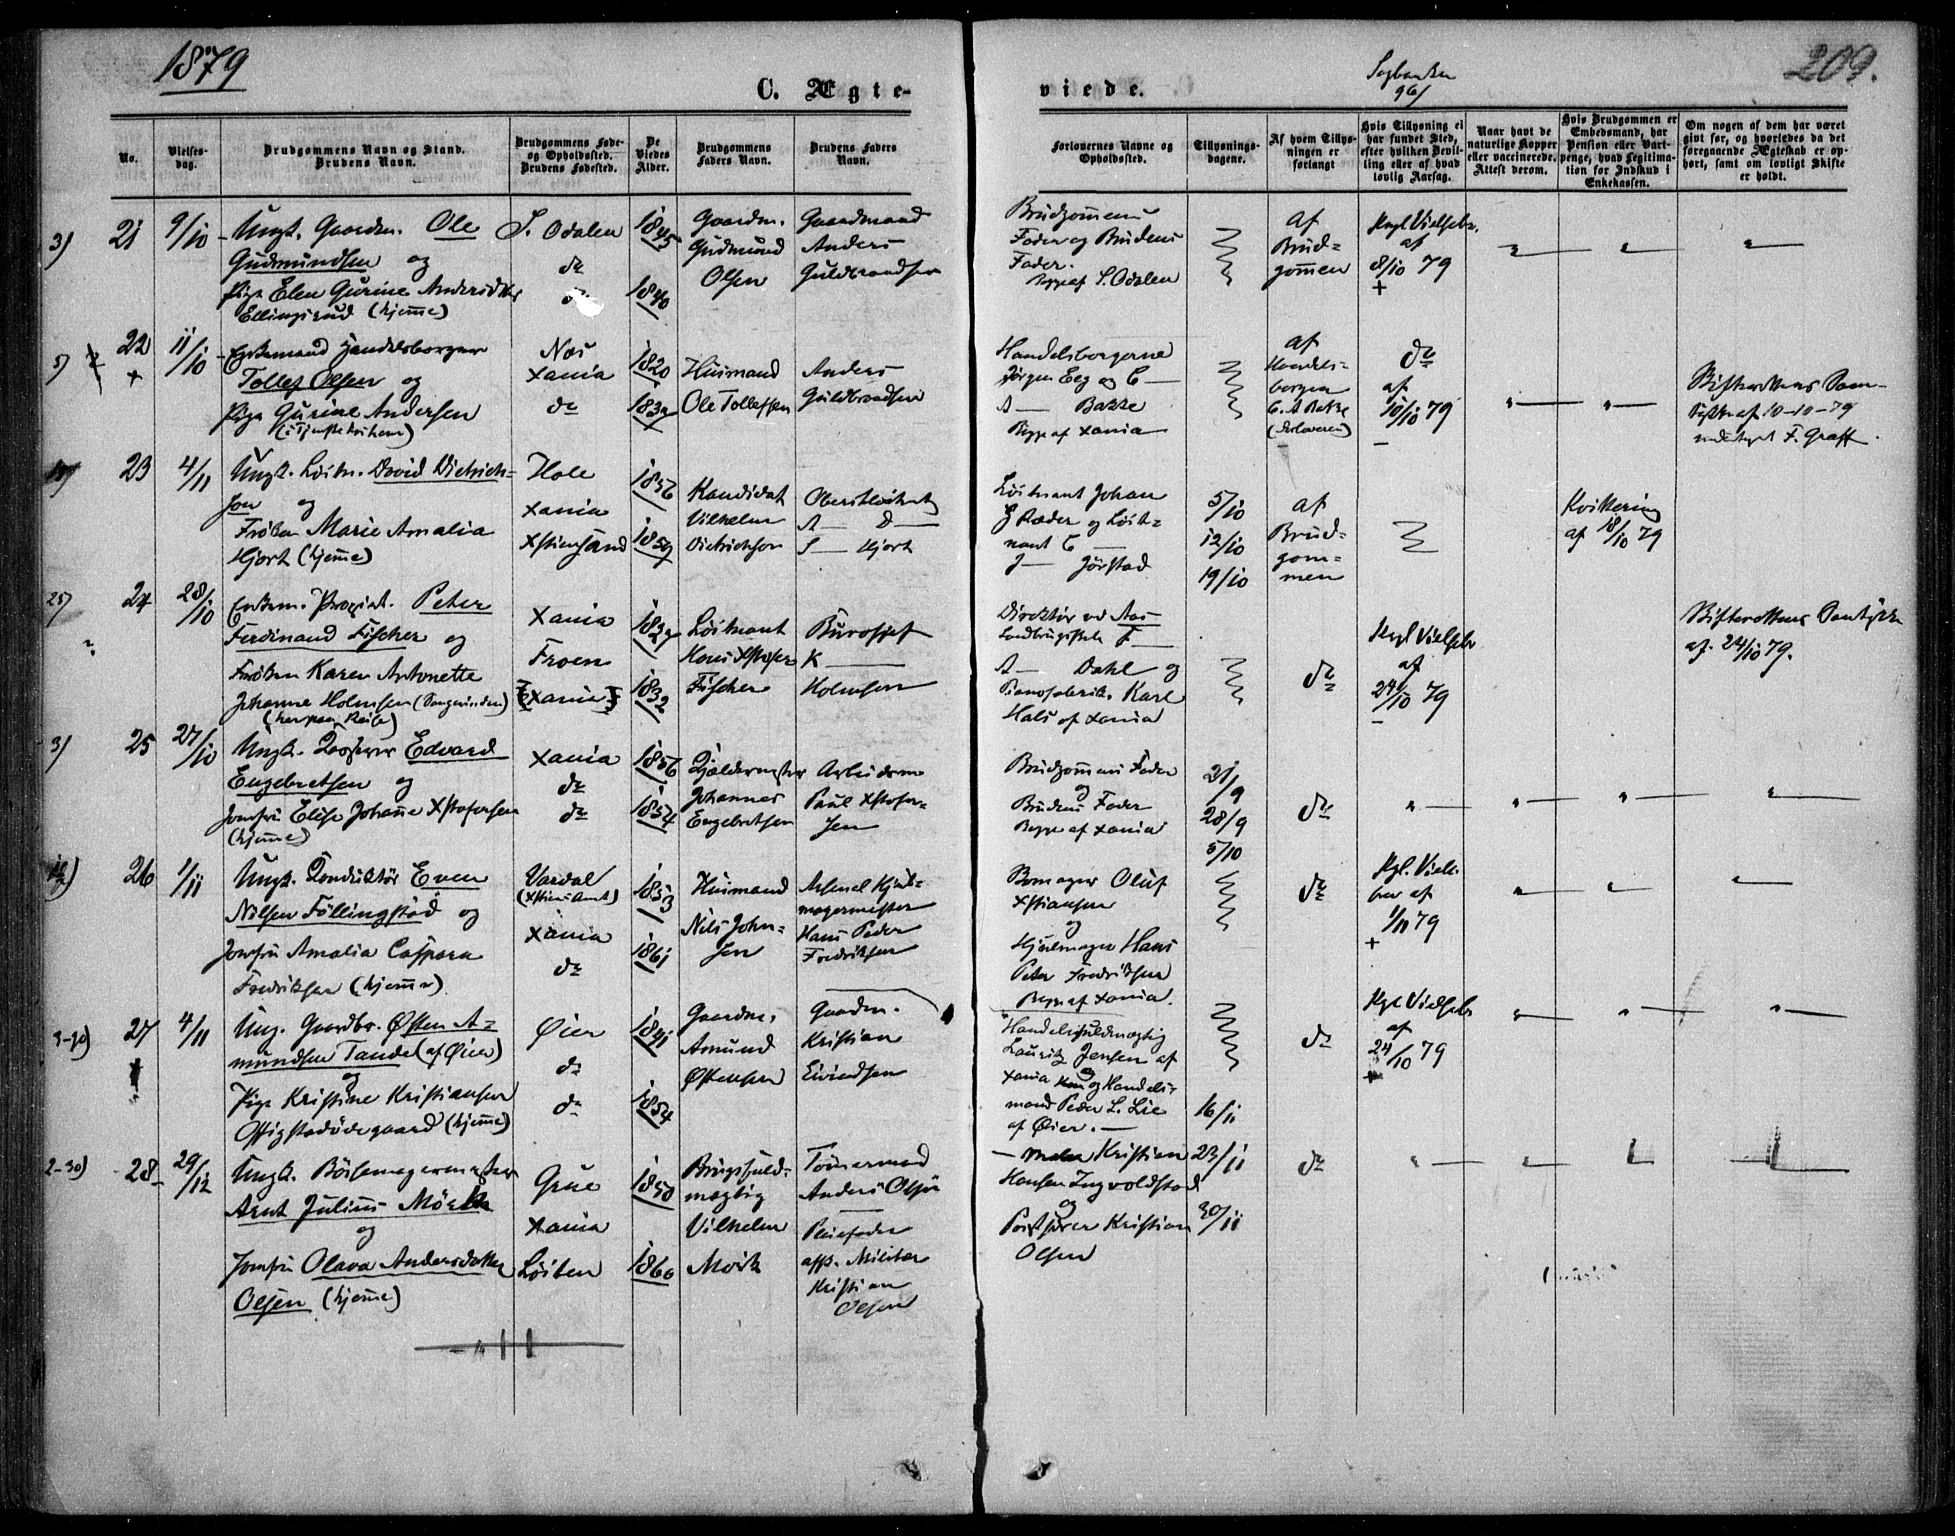 1879
209.
C. Ægte-
viede.
No.
Vielses-
dag.
Brudgommens Navn og Stand.
Brudens Navn.
Brudgommens Føde-
og Opholdssted.
Brudens Fødested.
De
Viedes
Alder.
Brudgommens
Faders Navn.
Brudens Faders
Navn.
Forlovernes Navne og
Opholdssted.
Tillysnings-
dagene.
Af hvem Tillys-
ningen er
forlangt
Hvis Tillysning ei
har fundet Sted,
efter hvilken Bevil-
ling eller af hvad
lovlig Aarsag.
Naar havt de
naturlige Kopper
eller vaccinerede.
Attest derom.
Hvis Brudgommen er
Embedsmand, har
Pension eller Vart-
penge, hvad Legitima-
tion for Indskud i
Enkekassen.
Om nogen af dem har været
gift før, og hvorledes da det
foregaaende Ægteskab er op-
hørt, samt om lovligt Skifte
er holdt.
3) 21 9/10 Ungk. Gaardm. Ole
Gudmundsen og
Pige Elen Gurine Andersdtter
Ellingsrud (hjemme)
S. Odalen
do
do
1845
1840
Gaardm.
Gudmund
Olsen
Gaardmand
Anders
Guldbrandsen
Brudgommens
Fader og Brudens
Fader.
Begge af S. Odalen
af
Brud-
gommen
Kgl Vielsesbr.
af
8/10 79
+
5) 22 + 11/10 Enkemand Handelsborger
Tollef Olsen og
Pige Gurine Andersen
Næs
Xania
do
1820
Huusmand
Ole Tollefsen
Anders
Guldbrandsen
Handelsborgerne
Jørgen Eeg og C
A Bakke
Begge af Xania
af
Handels-
borger
C. A Bakke
(Forloveren)
do
af
10/10 79
Skifterettens
af 10-10-79
F. Graff.
23 4/11 Ungk. Løitn. David Dietrich-
son og
Frøken Marie Amalia
Hjort (hjemme)
Hole
Xania
Xstiansand
1856
1859
Kandidat
Vilhelm
Dietrichson
Oberstløitnt
A D
S Hjort
Løitnant Johan
Ræder og Løit-
nant C
J Jørstad
5/10
12/10
19/10
af
Brud-
gom-
men
Kvittering
af 18/10 79
25) 24 28/10 Enkem. Propriet. Peter
Ferdinand Fischer og
Frøken Karen Antonette
Johanne Holmsen (Sangerinden)
Xania
Froen
(Xania)
1832
Løitnant
Hans Xstofer
Fischer
Bureausjef
K
Holmsen
Direktør ved Aas
Landbrugsskole F
A Dahl og
Pianofabrik. Karl
Hals af Xania
do
Kgl Vielsesbr
af
24/10 79
Skifterettens Samtykke
af 24/10 79.
3) 25 27/10 Ungk. Edvard
Engebretsen og
Jomfru Elise Johanne Xstofersen
(hjemme)
Xania
do
do
1856
1854
Johannes
Engebretsen
Arbeidsm
Paul Xstofer-
sen
Brudgommens Fader
og
Brudens Fader
Begge af Xania
21/9
28/9
5/10
do
26 1/11 Ungk. Konduktør Even
Nilsen Föllingstad og
Jomfru Amalia Caspara
Fredriksen (hjemme)
Vardal
(Xstians Amt)
Xania
do
1853
1861
Huusmand
Nils John-
sen
Arsenal Hjul-
magermester
Hans Peder
Fredriksen
Bomager Oluf
Xstiansen
og
Hjulmager Hans
Peter Fredriksen
Begge af Xania.
do
Kgl. Viels.
brev af
1/11 79
+
27 4/11 Ung. Gaardbr. Østen A-
mundsen Tande (af Øier)
og
Pige Kristine Kristiansen
Offigstadødegaard (hjemme)
Øier
do
do
1841
1854
Gaardm.
Amund
Østensen
Gaardm.
Kristian
Eivindsen
Handelsfuldmægtig
Lauritz Jensen af
Xania og Handels-
mand Peder L. Lie
af Øier.
do
Kgl Vielsesbr
af
24/10 79
+
2-30) 28 29/12 Ungk. Bösemagermester
Arnt Julius Mörk
og
Jomfru Olava Andersdatter
Olsen (hjemme)
Grue
Xania
Løiten
1850
1860
Brugsfuld-
mægtig
Vilhelm
Mörk
Tömermand
Anders Olsen
Pleiefader
afsk. Militær
Kristian
Olsen
Kristian
Hansen Ingvoldstad
og
Kristian
Olsen
16/11
23/11
30/11
do